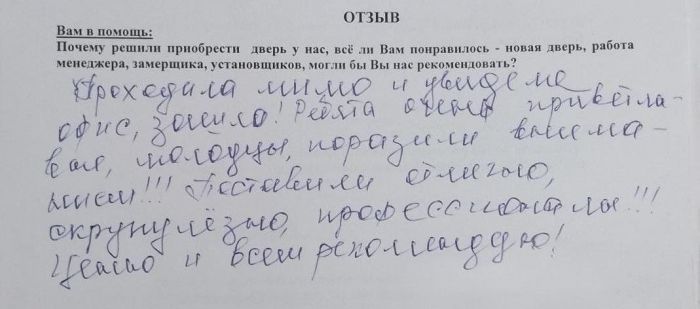 ОТЗЫВ
Вам в помощь:
Почему решили приобрести дверь у нас, всё ли Вам понравилось - новая дверь, работа
менеджера, замерщика, установщиков, могли бы Вы нас рекомендовать?
Проходила мимо и увидела
офис, зашла! Ребята очень приветли-
вые, молодцы, поразили внима-
нием!!! Поставили отлично,
скрупулёзно, профессионалы!!!
и всем рекомендую!